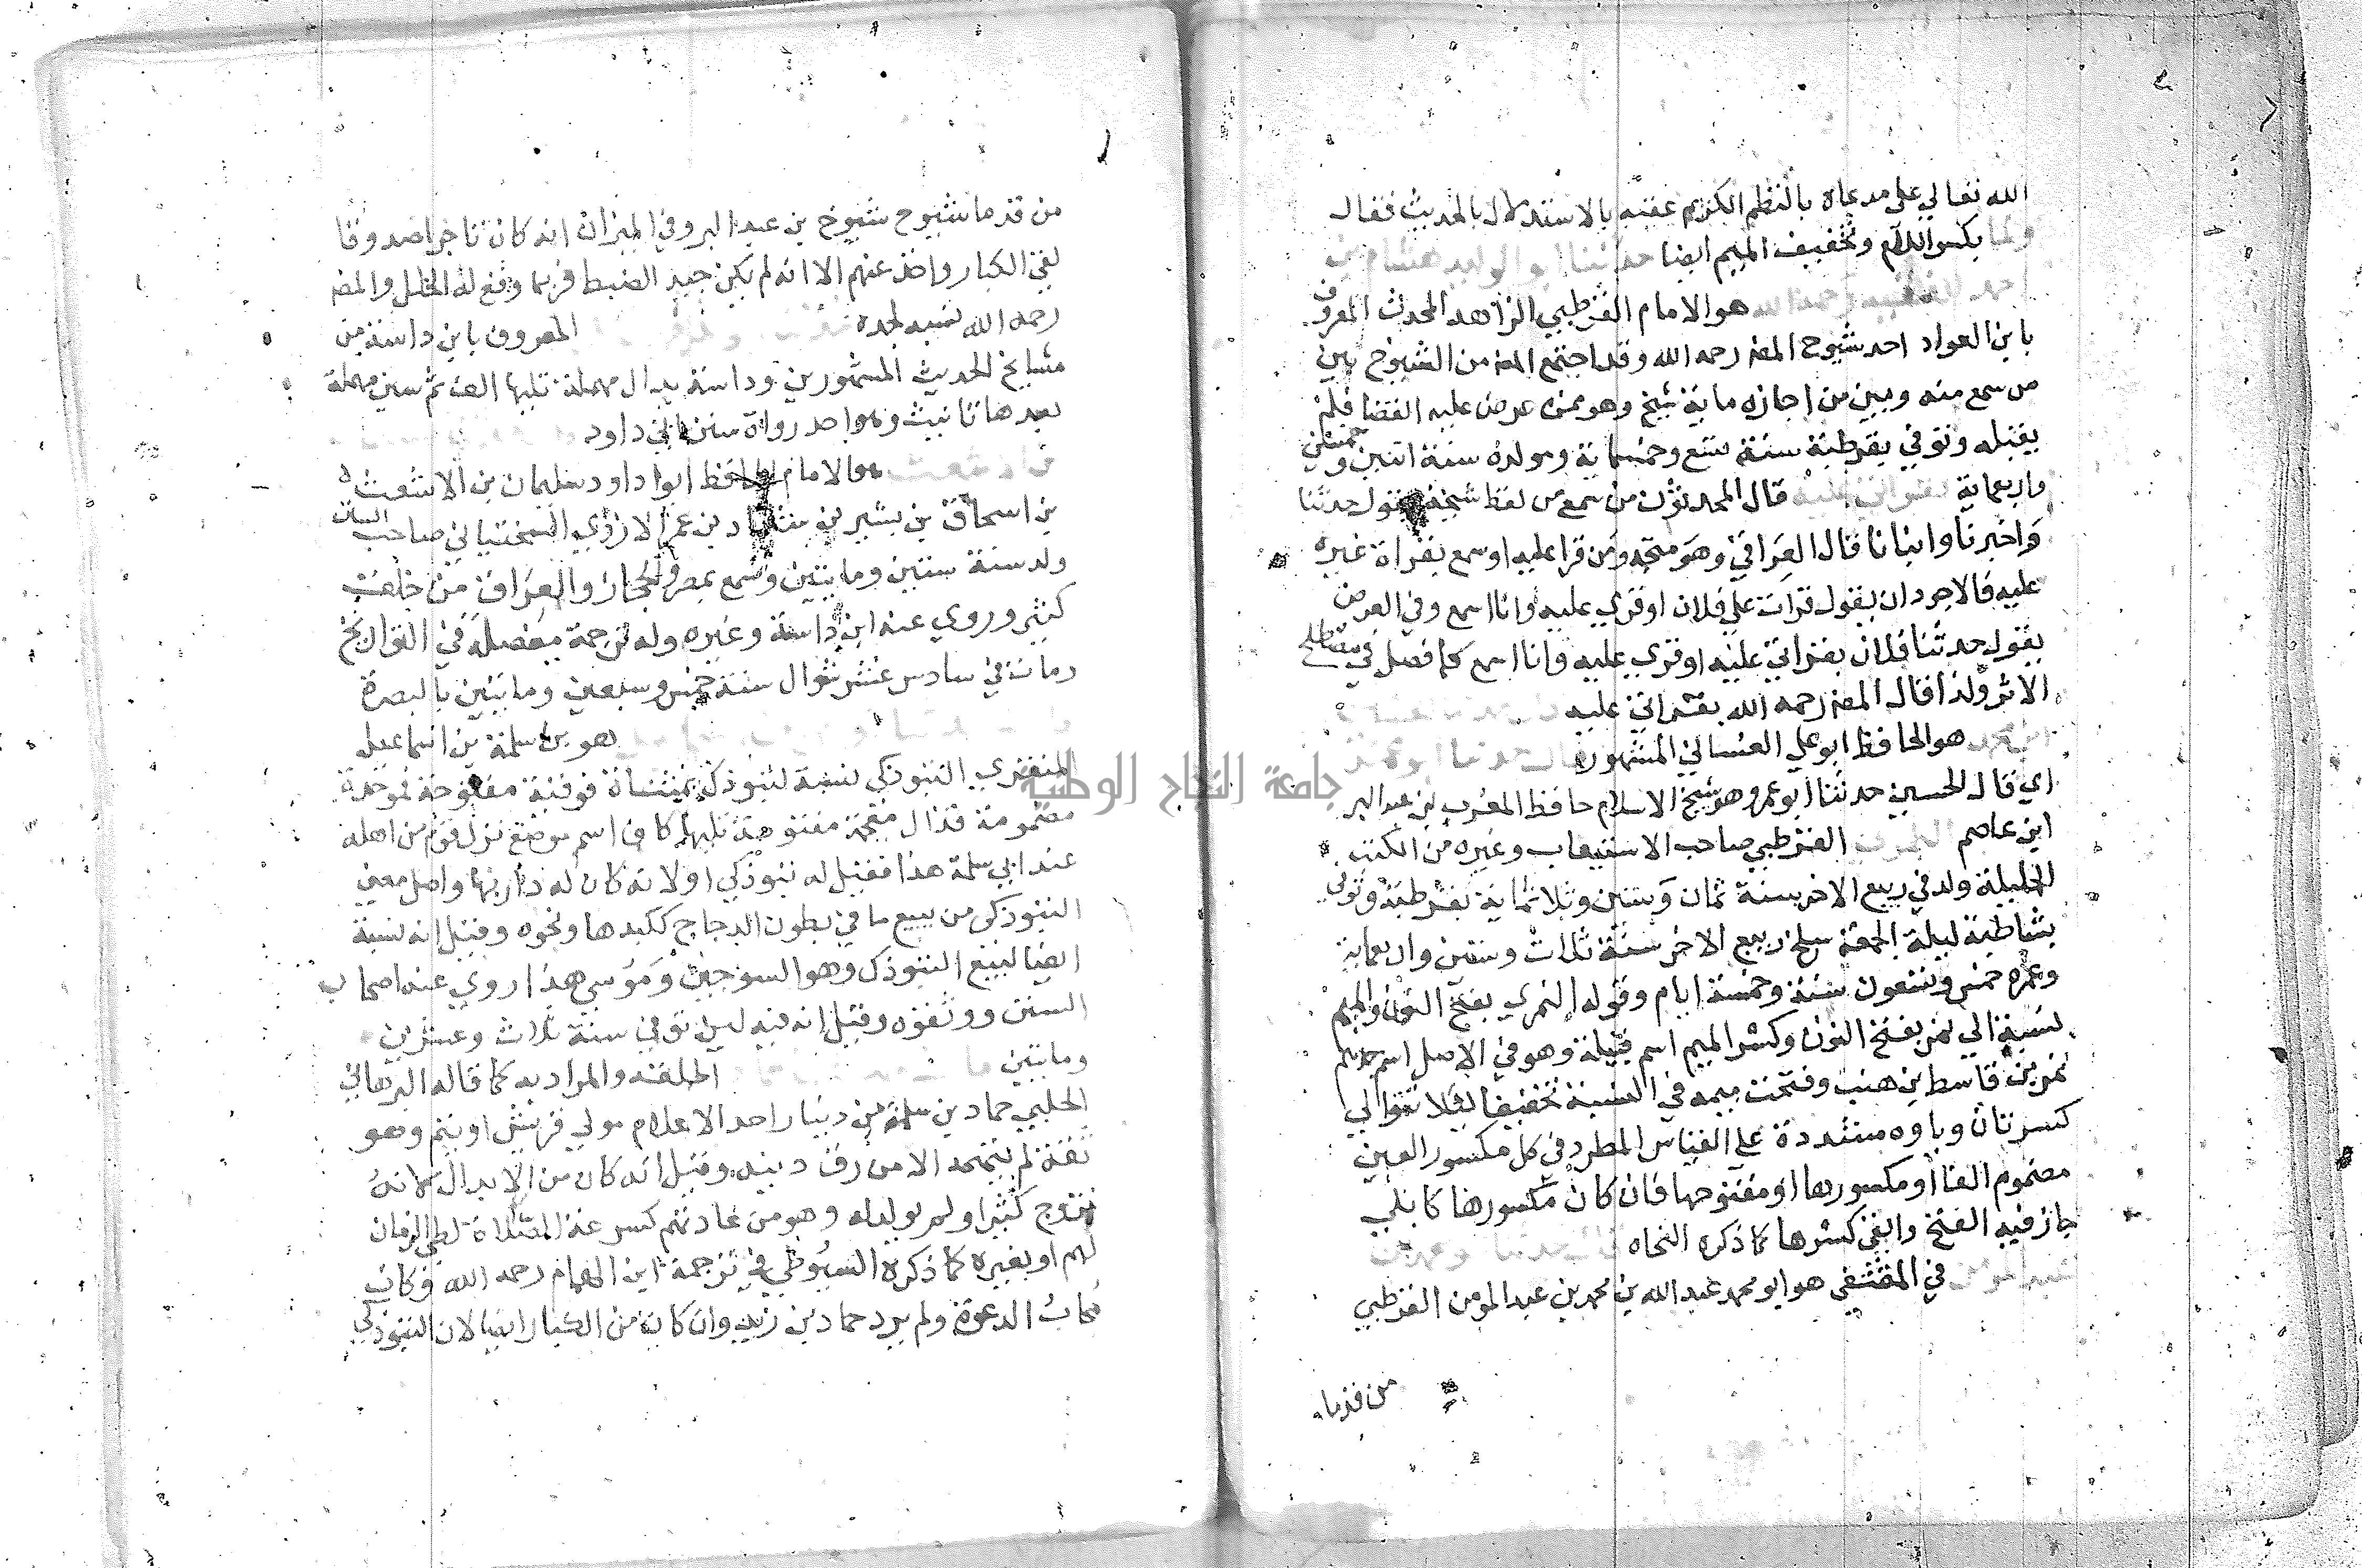 الله تعالي علي مدعاه بالنظم الكريم عقبه بالاستدلال بالحديث فقال
بكسر اللام وتخفيف الميم ايضا حدثنا ابو الوليد هشام بن
احمد الفقيه رحمه الله هو الامام القرطبي الزاهد المحدث المعروف
بابن العواد احد شيوخ المص رحمه الله وقد اجتمع المص من الشيوخ بين
من سمع منه وبين من اجازه ماية شيخ وهو ممن عرض عليه القضا فلم
يقبله وتوفي بقرطبة سنة تسع وخمسماية ومولده سنة اثنين وخمسين
واربعماية بقراتي عليه قال المحدثون من سمع من لفظ شيخه يقول حدثنا
واخبرنا وانبانا قال العراقي وهو متجه ومن قرا عليه او سمع بقراة غيره
عليه فالاجود ان يقول قرات علي فلان او قري عليه وانا اسمع وفي العرض
يقول حدثنا فلان بقراتي عليه او قري عليه وانا اسمع كما فصل في مصطلح
الاثر ولذا قال المص رحمه الله بقراتي عليه
هو الحافظ ابو علي الغساني المشهور قال حدثنا ابو عمر
اي قال الحسين حدثنا ابو عمر وهو شيخ الاسلام حافظ المغرب ابن عبد البر
ابن عاصم النمري القرطبي صاحب الاستيعاب وغيره من الكتب
الجليلة ولد في ربيع الاخر سنة ثمان وستين وثلاثماية بقرطبة وتوفي
بشاطبة ليلة الجمعة سلخ ربيع الاخر سنة ثلاث وستين واربعماية
وعمره خمس وتسعون سنة وخمسة ايام وقوله النمري بفتح النون والميم
نسبة الي نمر بفتح النون وكسر الميم اسم قبيلة وهو في الاصل اسم جدهم
نمر بن قاسط بن هنب وفتحت ميمه في النسبة تخفيفا ليلا تتوالي
كسرتان وياوه مشددة علي القياس المطرد في كل مكسور العين
مضموم الفا او مكسورها او مفتوحها فان كان مكسورها كابلي
جاز فيه الفتح وابقي كسرها كما ذكره النحاه قال حدثنا
عبد المومن في المقتفي هو ابو محمد عبد الله بن محمد بن عبد المومن القرطبي
من قدما
من قدما شيوخ شيوخ بن عبد البر وفي الميزان انه كان تاجرا صدوقا
لقي الكبار واخذ عنهم الا انه لم يكن جيد الضبط فربما وقع له الخلل والمص
رحمه الله نسبه لجده المعروف بابن داسة من
مشايخ الحديث المشهورين وداسة بدال مهملة تليها الف ثم سين مهملة
بعدها تانيث وهو احد رواة سنن ابي داود
هو الامام الحافظ ابو داود سليمان بن الاشعث
بن اسحاق بن بشير بن شداد بن عمر الازدي السجستاني صاحب السنن
ولد سنة سنتين ومايتين وسمع بمصر والحجاز والعراق من خلق
كثير وروي عنه ابن داسة وغيره وله ترجمة مفصلة في التواريخ
ومات في سادس عشر شوال سنة خمس وسبعين ومايتين بالبصرة
هو بن سلمة بن اسماعيل
المنقري التبوذكي نسبة لتبوذك بمثناة فوقية مفتوحة فموحدة
مضمومة فذال معجمة مفتوحة تليها كاف اسم موضع نزل قوم من اهله
عند ابي سلمة هذا فقيل له تبوذكي اولانه كان له دار بها واصل معني
التبوذكي من يبيع ما في بطون الدجاج ككبدها ونحوه وقيل انه نسبة
ايضا لبيع التبوذك وهو السرجين وموسي هذا روي عنه اصحاب
السنن ووثقوه وقيل انه فيه لين توفي سنة ثلاث وعشرين
ومايتين الحلقة والمراد به كما قاله البرهاني
الحلبي حماد بن سلمة بن دينار احد الاعلام مولي قريش او تيم وهو
ثقة لم يتهمه الا من رق دينه وقيل انه كان من الابدال لانه
تزوج كثيرا ولم يولد له وهو من عادتهم كسر عنة المقلاة لطي الزمان
لهم او بغيره كما ذكره السيوطي في ترجمة ابن الهمام رحمه الله وكان
مجاب الدعوة ولم يرد حماد بن زيد وان كان من الكبار ايضا لان التبوذكي
جامعة النجاح الوطنية